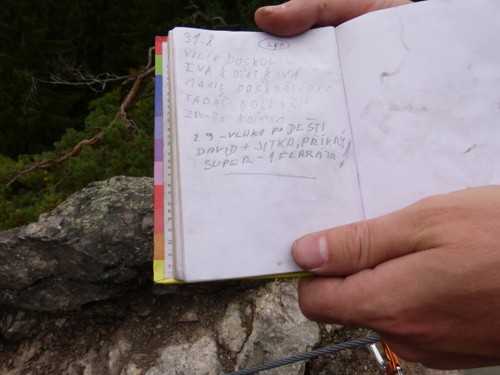 31.8
VILÉM DOSKOČIL
IVA KOŤÁTKOVÁ
MARIE DOSKOČILOVÁ
TADÁŠ DOSKOČIL
2.9 - VLHKO PO DEŠTI
DAVID + JITKA, PŘIKRÝ
SUPER - 1 FERRATA!